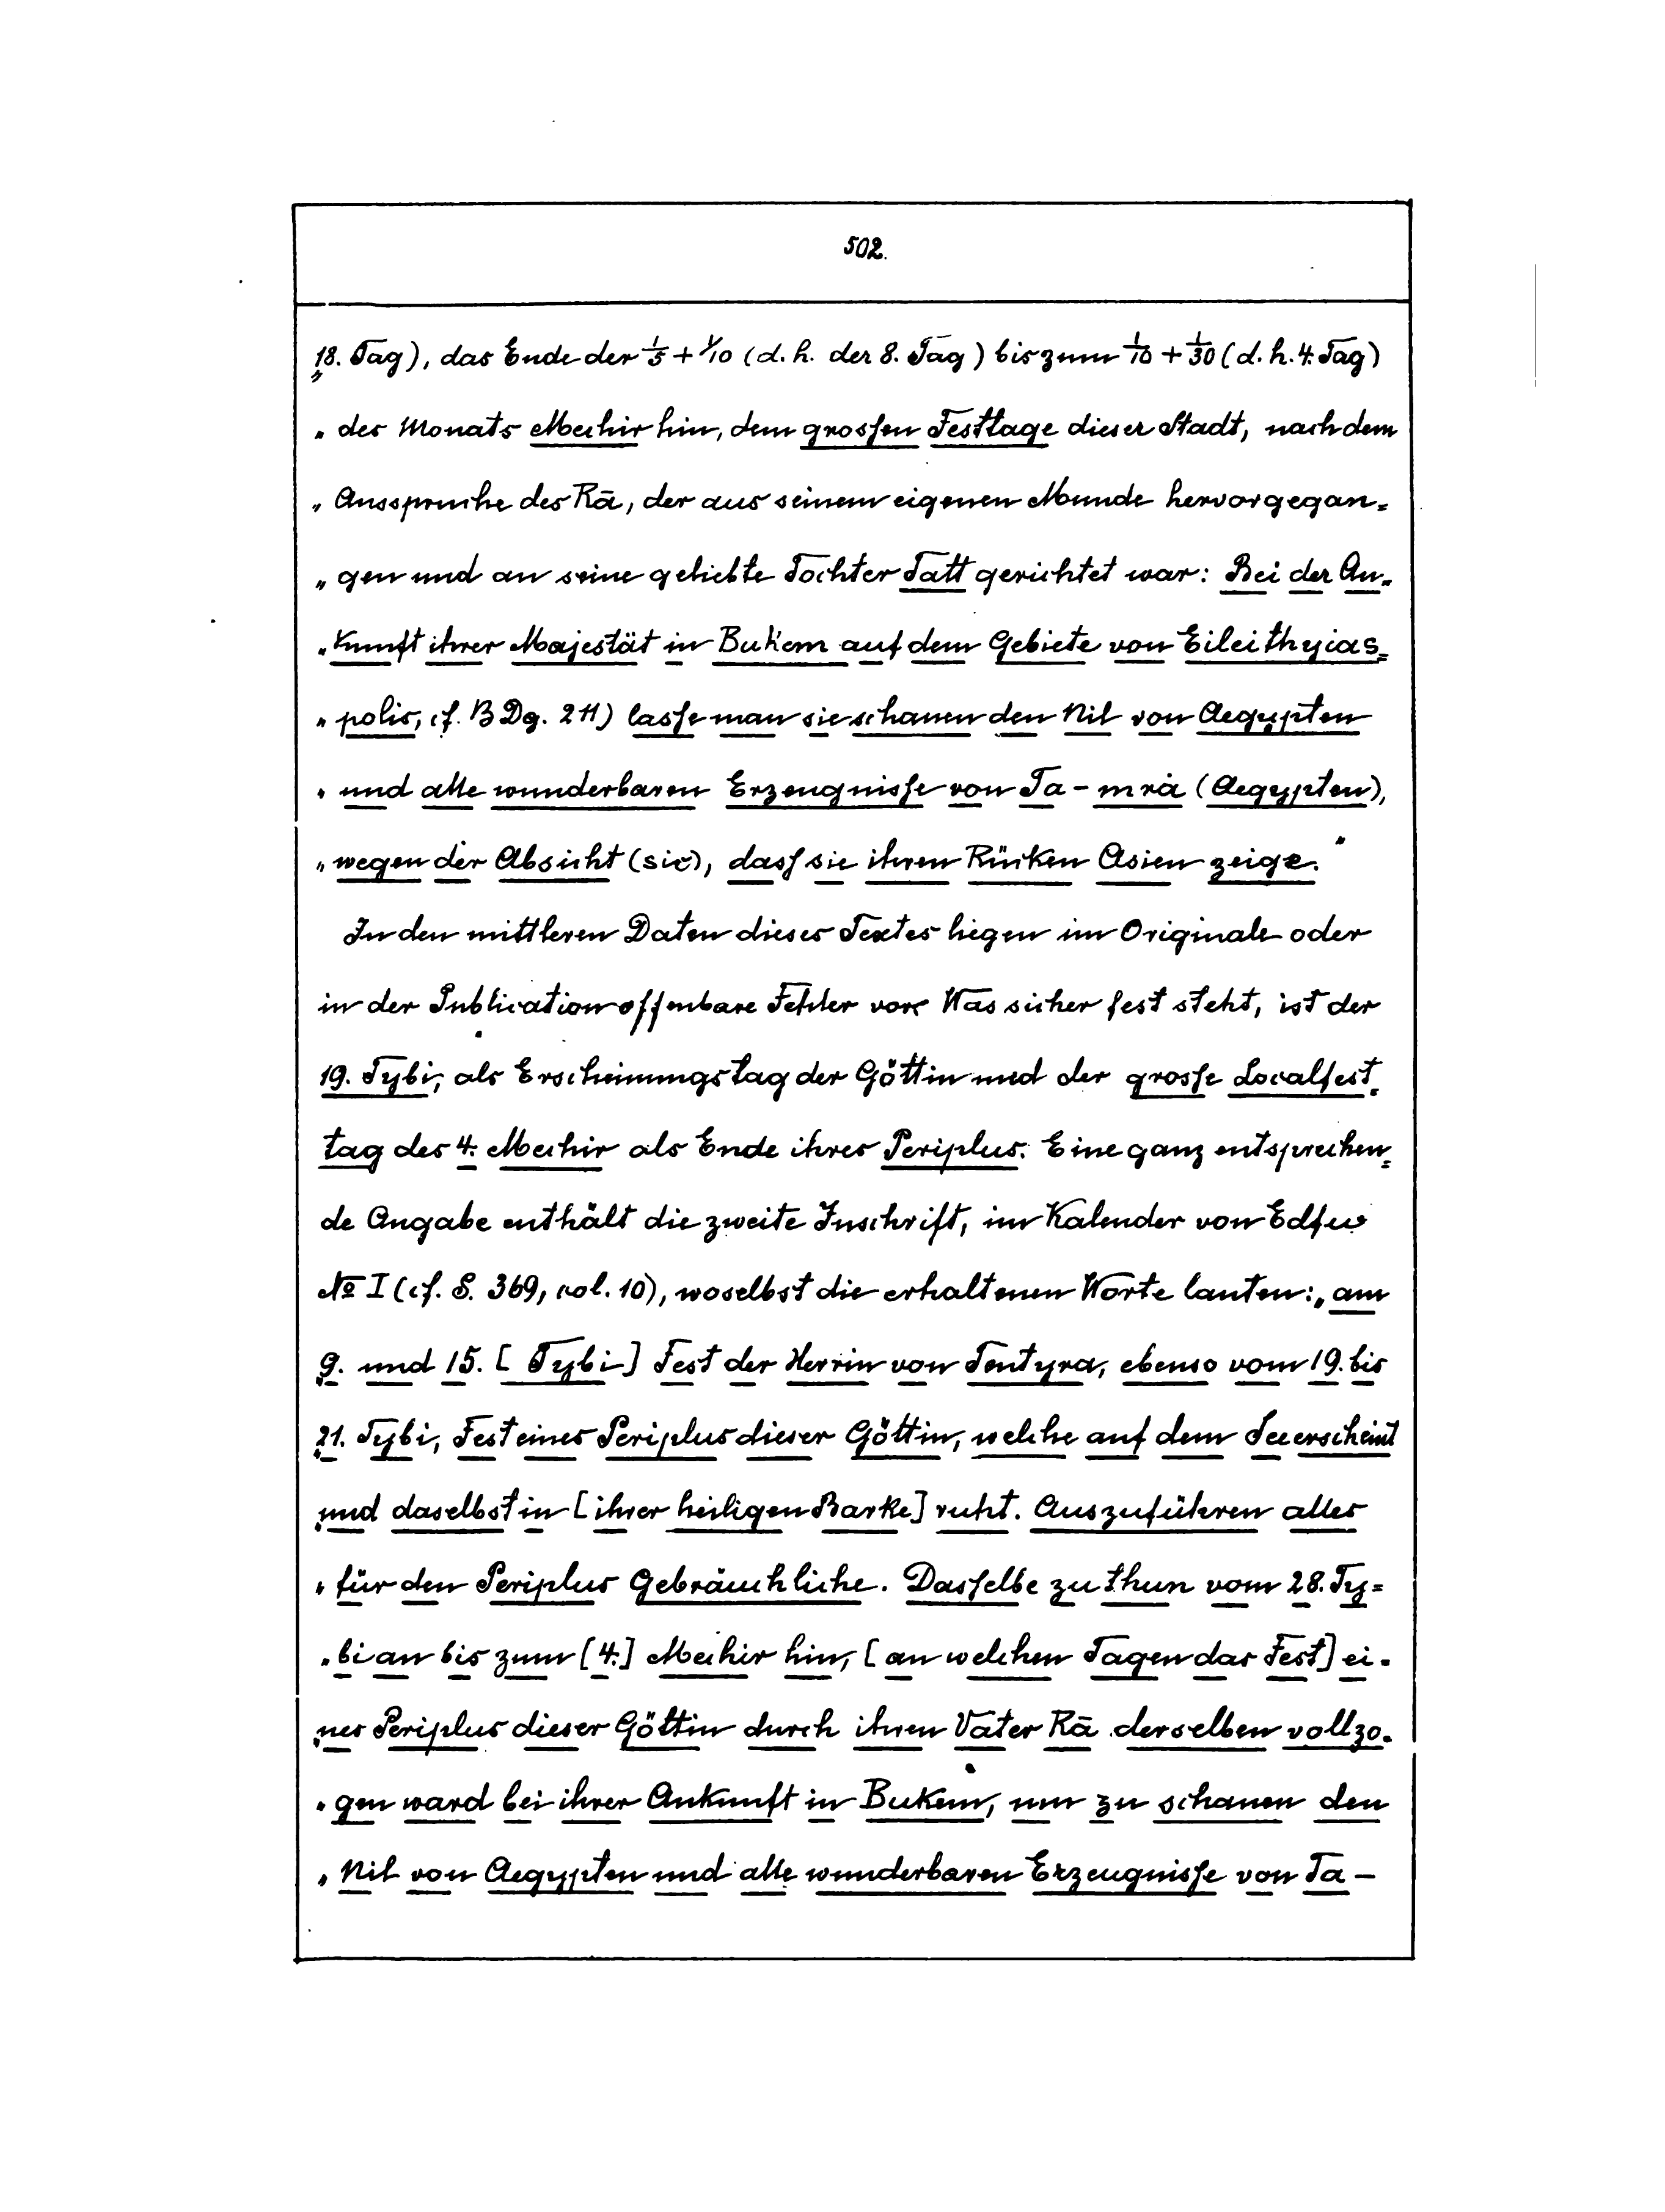 502.
„18. Tag), das Ende der 1/5 + 1/10 (d. h. der 8. Tag) bis zum 1/10 + 1/30 (d. h. 4. Tag)
„ des Monats Mechir hin, dem grossen Festtage dieser Stadt, nach dem
„ Ausspruche des Rā, der aus seinem eigenen Munde hervorgegan-
„ gen und an seine geliebte Tochter Tatt gerichtet war: Bei der An-
„ kunft ihrer Majestät in Bukem auf dem Gebiete von Eileithyias-
„ polis, cf. BDg. 211) lasse man sie schauen den Nil von Aegypten
„ und alle wunderbaren Erzeugnisse von Ta-mrà (Aegypten),
„ wegen der Absicht (sic), dass sie ihren Rücken Asien zeige."
In den mittleren Daten dieses Textes liegen im Originale oder
in der Publication offenbare Fehler vor. Was sicher fest steht, ist der
19. Tybi, als Erscheinungstag der Göttin und der grosse Localfest-
tag des 4. Mechir als Ende ihres Periplus. Eine ganz entsprechen-
de Angabe enthält die zweite Inschrift, im Kalender von Edfu
№ I (cf. S. 369, col. 10), woselbst die erhaltenen Worte lauten: „am
„9. und 15. [Tybi] Fest der Herrin von Tentyra, ebenso vom 19. bis
„21. Tybi, Fest eines Periplus dieser Göttin, welche auf dem See erscheint
„und daselbst in [ihrer heiligen Barke] ruht. Auszuführen alles
„ für den Periplus Gebräuchliche. Dasselbe zu thun vom 28. Ty-
„ bi an bis zum [4.] Mechir hin, [an welchen Tagen das Fest] ei-
„nes Periplus dieser Göttin durch ihren Vater Rā derselben vollzo-
„ gen ward bei ihrer Ankunft in Bukem, um zu schauen den
„ Nil von Aegypten und alle wunderbaren Erzeugnisse von Ta-